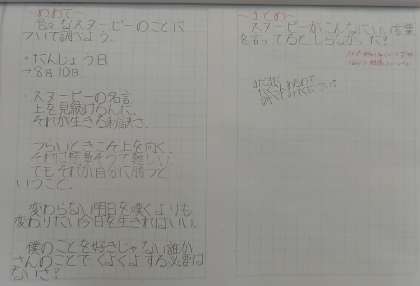 〜めあて〜
色々なスヌーピーのことに
ついて調べよう。
・たんじょう日
→8月10日
・スヌーピーの名言
上を見続けるんだ…
それが生きる秘訣さ。
つらいときこそ上を向く、
それは簡単そうで難しい
でもそれが自分に勝つと
いうこと。
変わらない明日を嘆くよりも
変わりたい今日を生きればいい。
僕のことを好きじゃない誰か
さんのことでくよくよする必要は
ないさ?
〜まとめ〜
スヌーピーがこんなにいい言葉
を言ってるとしらなかった!